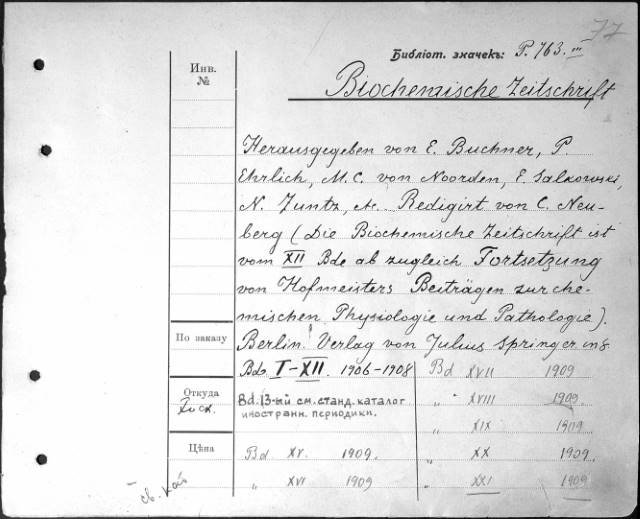 77
Библіот. значекъ: P. 763. III
Инв. №
Biochemische Zeitschrift
Herausgegeben von E. Buchner, P.
Ehrlich, M.C. von Noorden, E. Salkowski,
N. Zuntz, etc. Redigirt von C. Neu-
berg (Die Biochemische Zeitschrift ist
vom XII Bde ab zugleich Fortsetzung
von Hofmeisters Beiträgen zur che-
mischen Physiologie und Pathologie).
По заказу
Berlin. Verlag von Julius Springer in 8
Bd. I–XII. 1906–1908
Bd XVII 1909
Откуда
8d. 13-ый см. станд. каталог
иностранн. периодики.
„ XVIII 1909.
„ XIX 1909
Цѣна
Bd XV. 1909.
„ XX 1909.
„ XVI 1909
„ XXI 1909